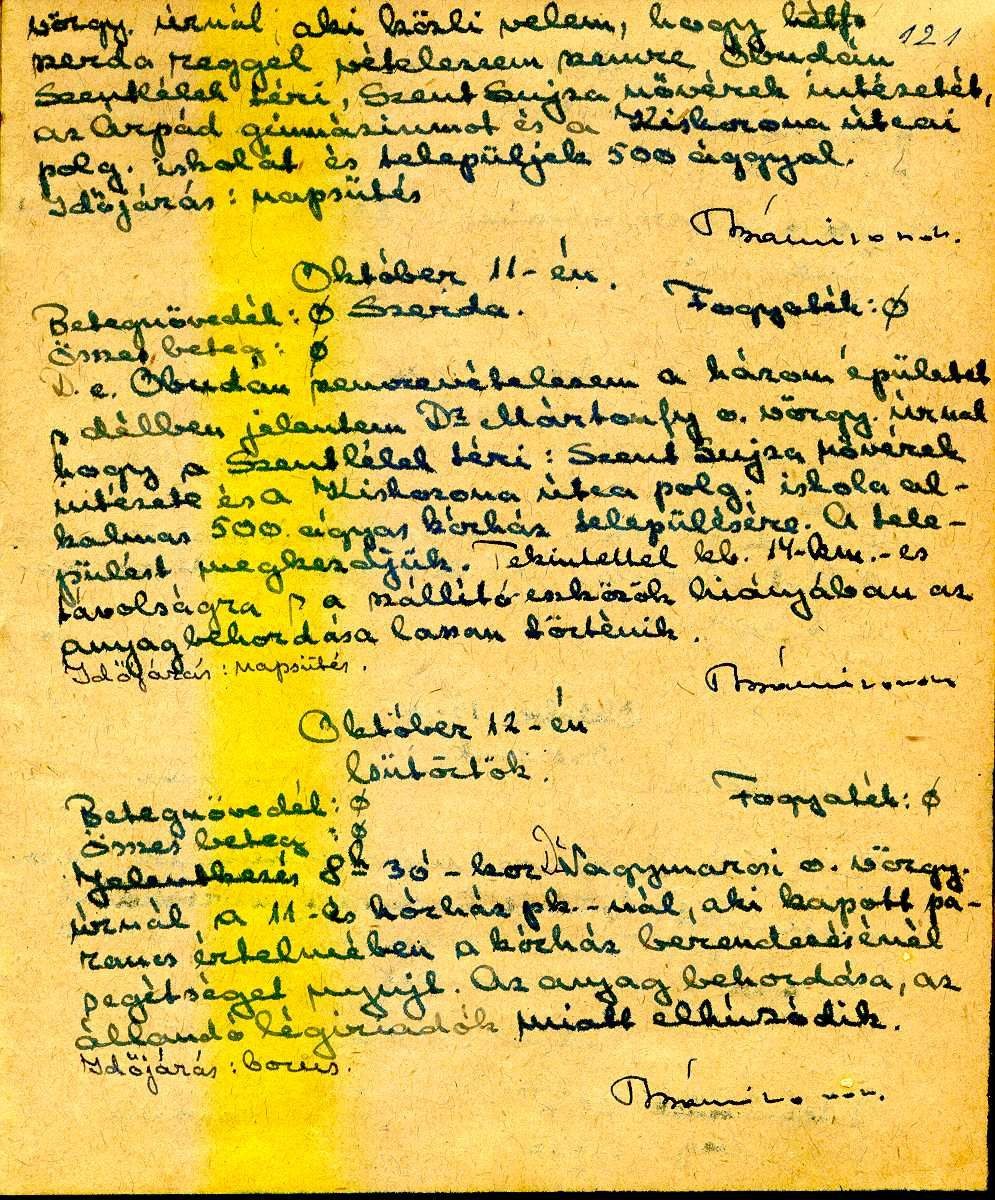 121
vörgy. úrnál, aki közli velem, hogy
szerda reggel vételezzem szemre Óbudán
Szentlélek téri, Szent Lujza nővérek intézetét,
az Árpád gimnáziumot és a Kiskorona útcai
polg. iskolát és települjek 500 ággyal.
Időjárás: napsütés
Október 11-én.
Szerda.
Betegnövedék: ø Fogyaték: ø
Összes beteg: ø
D. e. Óbudán szemrevételezem a három épületet
s délben jelentem Dr Mártonfy o. vörgy. úrnak
hogy a Szentlélek téri: Szent Lujza nővérek
intézete és a Kiskorona útca polg. iskola al-
kalmas 500 ágyas kórház településére. A tele-
pülést megkezdjük. Tekintettel kb. 14-km.-es
távolságra s a szállító eszközök hiányában az
anyag behordása lassan történik.
Időjárás: napsütés.
Október 12-én
Csütörtök.
Betegnövedék: ø Fogyaték: ø
Összes beteg: ø
Jelentkezés 8h 30-kor Dr Nagymarosi o. vörgy.
úrnál, a 11-es kórház pk.-nál, aki kapott pa-
rancs értelmében a kórház berendezésénél
segítséget nyujt. Az anyag behordása, az
állandó légiriadók miatt elhúzódik.
Időjárás: borus.